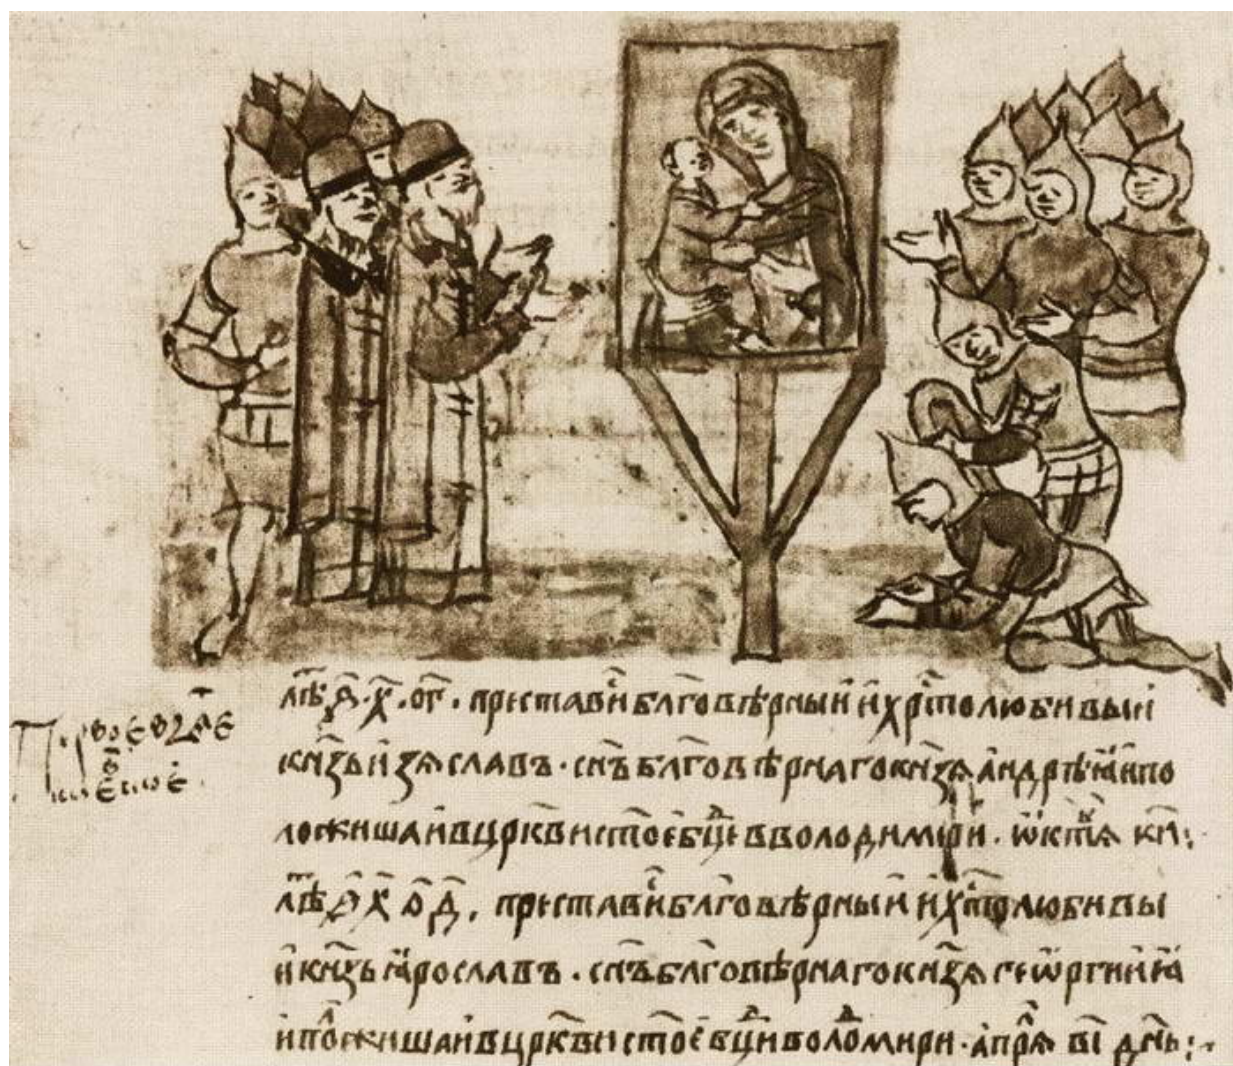 лѣ҃ ҂ѕ҃.х҃.ог҃. преставис̑ѧ бл҃говѣрныи и хрс̑толюбивыи
кнѧз̑ь изѧславъ. сн҃ъ бл҃говѣрнаго кнѧз̑ѧ андрѣꙗ и по
ложиша и в црк҃ви ст҃ое бц҃е в володимѣри. ѡктѧ кн҃:
лѣ҃ ҂ѕ҃ х҃ о҃ д҃. преставис̑ бл҃говѣрныи и хс̑толюбивы
и кнз҃ь ꙗрославъ. сн҃ъ бл҃говѣрнаго кнз҃ѧ геѡргиꙗ
и положиша и в црк҃ви ст҃ое бц҃и воло̑мири. апрѧ̑ вı҃ дн҃ь: